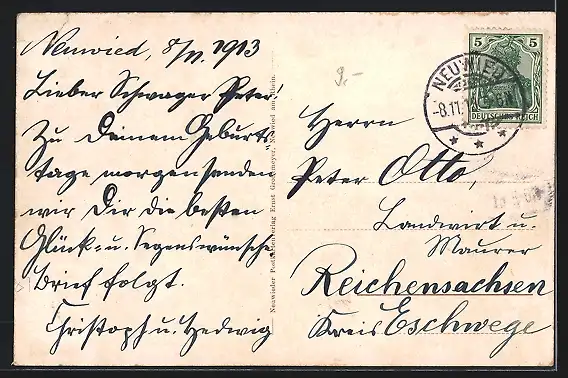 Neuwied, 8/11. 1913
Lieber Schwager Peter!
Zu Deinem Geburts
tage morgen senden
wir Dir die besten
Glück- u. Segenswünsche
Brief folgt.
Christoph u. Hedwig
Neuwieder Postkartenverlag Ernst Neuwied am Rhein.
2,-
5 5
DEUTSCHES REICH
NEUWIED
-8.11.13
Herrn
Peter Otto,
Landwirt u.
Maurer
Reichensachsen
Kreis Eschwege